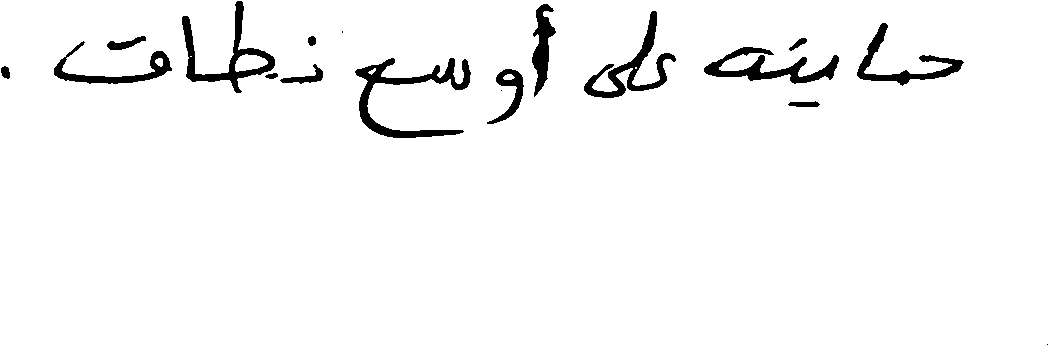 حماية على أوسع نطاق .